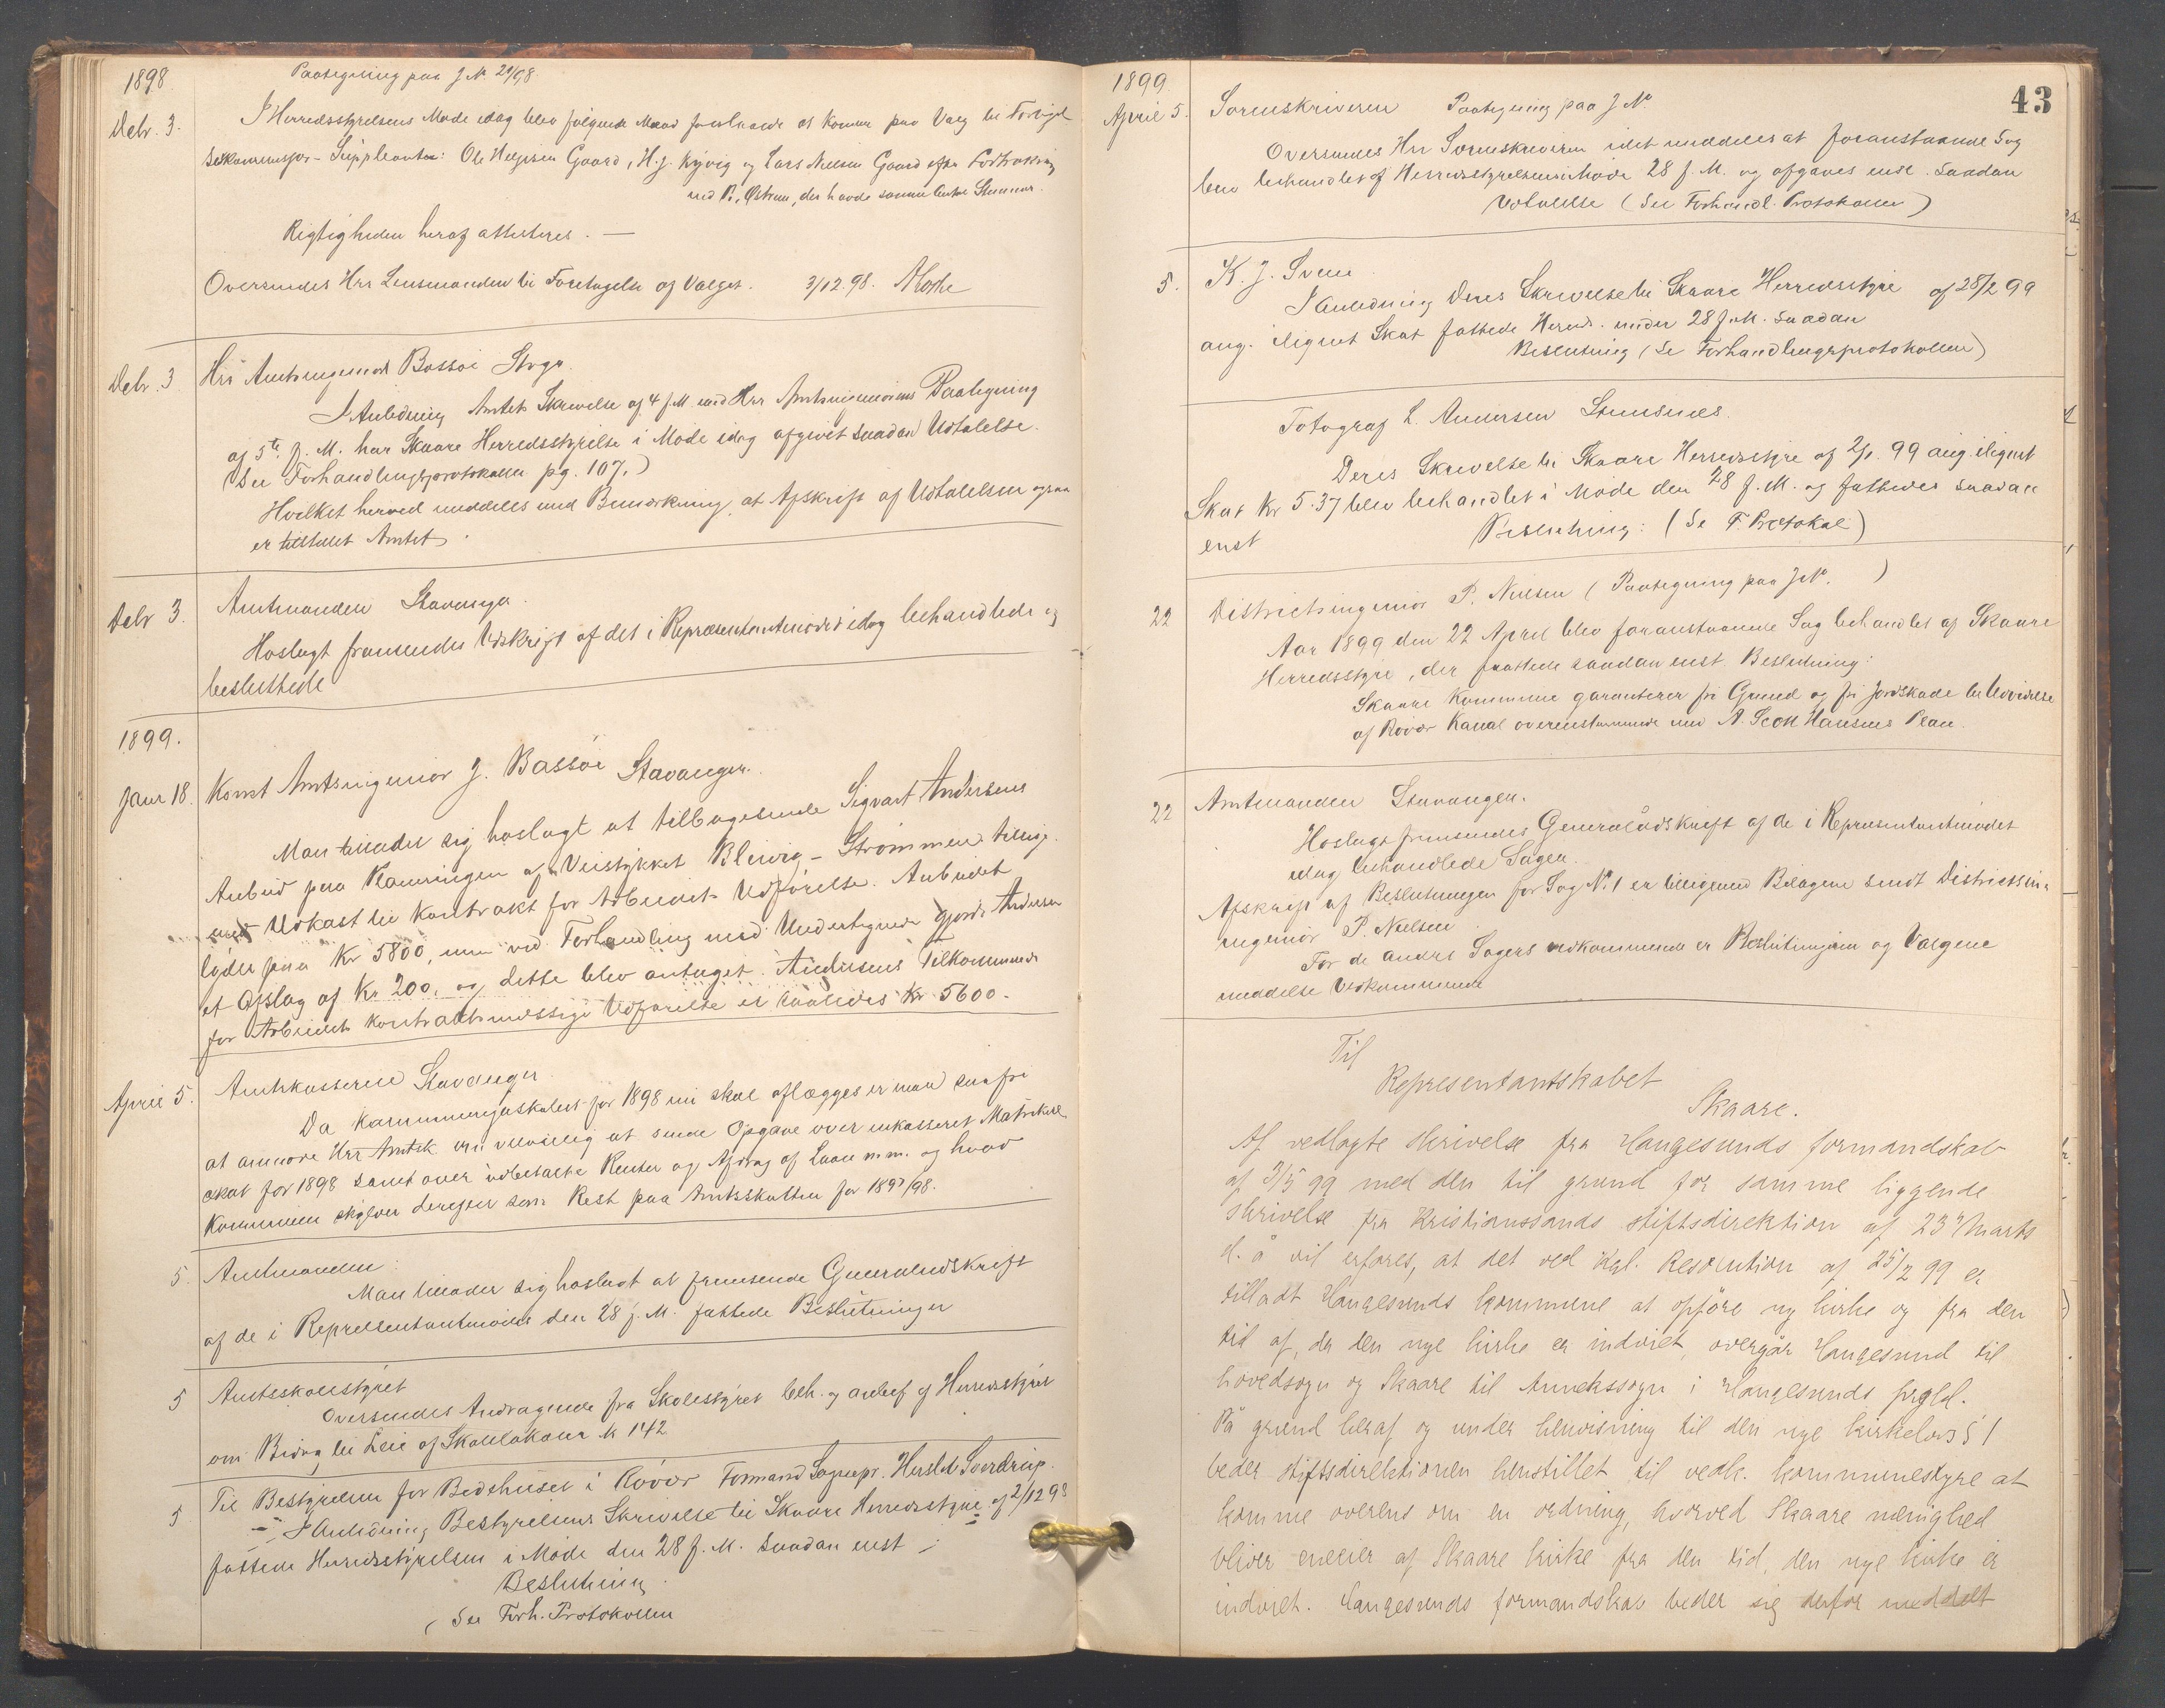 1898
Paategning paa J N. 29/98
Debr. 3.
I Herredsstyrelsens Møde idag blev følgende Mænd foreslaaede at komme paa Valg til Forligs
Suppleanter: Ole Helgesen Gaard, H. J. Kyvig og Lars Nielsen Gaard efter Lodtrækning
med P. Østrem, der havde samme Antal Stemmer.
Rigtigheden heraf attesteres. —
Oversendes Hrr Lensmanden til Foretagelse af Valget. 3/12.98.
Debr. 3
Hrr Amtsingeniør Bassøe Stvgr.
I Anledning Amtets Skrivelse af 4 f.M. med Hrr Amtsingeniørens Paategning
af 5te f. M. har Skaare Herredsstyrelse i Møde idag afgivet saadan Udtalelse.
(See Forhandlingsprotokollen pg. 107.)
Hvilket herved meddeles med Bemærkning, at Afskrift af Udtalelsen ogsaa
er tilstillet Amtet.
Debr 3.
Amtmanden Stavanger.
Hoslagt fremsendes Udskrift af det i Repræsentantmødet idag behandlede og
besluttede
1899.
Janr 18.
Konst Amtsingeniør J. Bassøe Stavanger.
Man tillader sig hoslagt at tilbagesende Sigvart Andersens
Anbud paa Planeringen af Veistykket Bleivig – Strømmen tillige
med Udkast til Kontrakt for Arbeidets Udførelse. Anbudet
lyder paa Kr 5800, men ved Forhandling med Undertegnede gjorde Andersen
et Afslag af Kr 200, og dette blev antaget. Andersens Tilkommende
for Arbeidets kontraktsmæssige Udførelse er saaledes Kr 5600.
April 5.
Amtskasserer Stavanger
Da Kommuneregnskabet for 1898 nu skal aflægges er man saa fri
at anmode Hrr Amtsk om velvillig at sende Opgave over inkasseret Matrikul
skat for 1898 samt over udbetalte Renter og Afdrag af Laan m.m. og hvad
Kommunen skylder derefter som Rest paa Amtsskatten for 1897/98.
5.
Amtmanden:
Man tillader sig hoslagt at fremsende Generaludskrift
af de i Representantmødet den 28 f. M. fattede Beslutninger
5
Amtsskolestyret
Oversendes Andragende fra Skolestyret beh. og anbef af Herredsstyret
om Bidrag til Leie af Skolelokaler k 142
5
Til Bestyrelsen for Bedehuset i Røvær Formand Sognepr. Sverdrup.
I Anledning Bestyrelsens Skrivelse til Skaare Herredsstyre af 2/12 98
fattede Herredsstyrelsen i Møde den 28 f. M. saadan enst
Beslutning
(See Forh. Protokollen
1899.
43
April 5.
Sorenskriveren Paategning paa J No
Oversendes Hrr Sorenskriveren idet meddeles at foranstaaende Sag
blev behandlet af Herredsstyrelsen i Møde 28 f. M. og afgaves enst. saadan
Udtalelse (See Forhandl. Protokollen)
5.
K. J. Svene
I Anledning Deres Skrivelse til Skaare Herredsstyre af 28/2 99
ang. ilignet Skat fattede Herreds. under 28 f. M. saadan
Beslutning (Se Forhandlingsprotokollen)
Fotograf L. Andersen Stensnes.
Deres Skrivelse til Skaare Herredsstyre af 2/1. 99 ang. ilignet
Skat Kr 5.37 blev behandlet i Møde den 28 f. M. og fattedes saadan
enst Beslutning: (Se F. Protokol)
22
Districtsingeniør P. Nielsen (Paategning paa J No. )
Aar 1899 den 22 April blev foranstaaende Sag behandlet af Skaare
Herredsstyre, der fattede saadan enst Beslutning:
Skaare Kommune garanterer fri Grund og fri Jordskade til Udvidelse
af Røvær Kanal overensstemmende med A. Scott Hansens Plan.
22
Amtmanden Stavanger.
Hoslagt fremsendes Generaludskrift af de i Representantmødet
idag behandlede Sager.
Afskrift af Beslutningen for Sag No. 1 er tilligemed Bilagene sendt Districtsin-
ingeniør P. Nielsen
For de andre Sagers vedkommende er Beslutningen og Valgene
meddelte Vedkommende
Til
Representantskabet
Skaare.
Af vedlagte skrivelse fra Haugesunds formandskab
af 3/5 99 med den til grund for samme liggende
skrivelse fra Kristianssands stiftsdirektion af 23de Marts
d. å vil erfares, at det ved Kgl. Resolution af 25/2 99 er
tilladt Haugesunds kommune at opføre ny kirke og fra den
tid af, da den nye kirke er indviet, overgår Haugesund til
hovedsogn og Skaare til Annekssogn i Haugesunds prgld.
På grund heraf og under henvisning til den nye kirkelovs § 1
beder stiftsdirektionen henstillet til vedk. kommunestyre at
komme overens om en ordning, hvorved Skaare menighed
bliver eneeier af Skaare kirke fra den tid, den nye kirke er
indviet. Haugesunds formandskab beder sig derfor meddelt